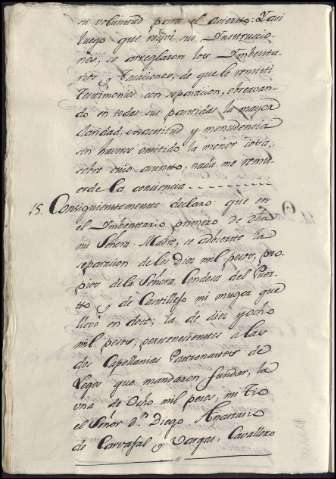 su voluntad para el acierto. Y asi
luego que recivi sus Instruccio-
nes, se arreglaron los Imbenta-
rios, y Tasaciones, de que le remiti
testimonios con separacion, observan-
do en todas sus partidas la mayor
claridad, exactitud y menudencia
sin haverse omitido la menor cosa,
sobre cuio asumto, nada me remu-
erde la conciencia
15. Consiguientemente declaro que en
el Imbentario primero de dicha
mi Señora Madre, se advierte la
separacion de los Dies mil pesos, pro-
pios de la Señora Condesa del Puer-
to, y de Castillejo mi muger que
llevó en dote; la de dies y ocho
mil pesos, pertenecientes a las
dos Capellanias Patronatos de
Legos que mandaron fundar, la
una de Ocho mil pesos, mi Tio
el Señor Dn. Diego Anastacio
de Carvajal y Vargas, Cavallero